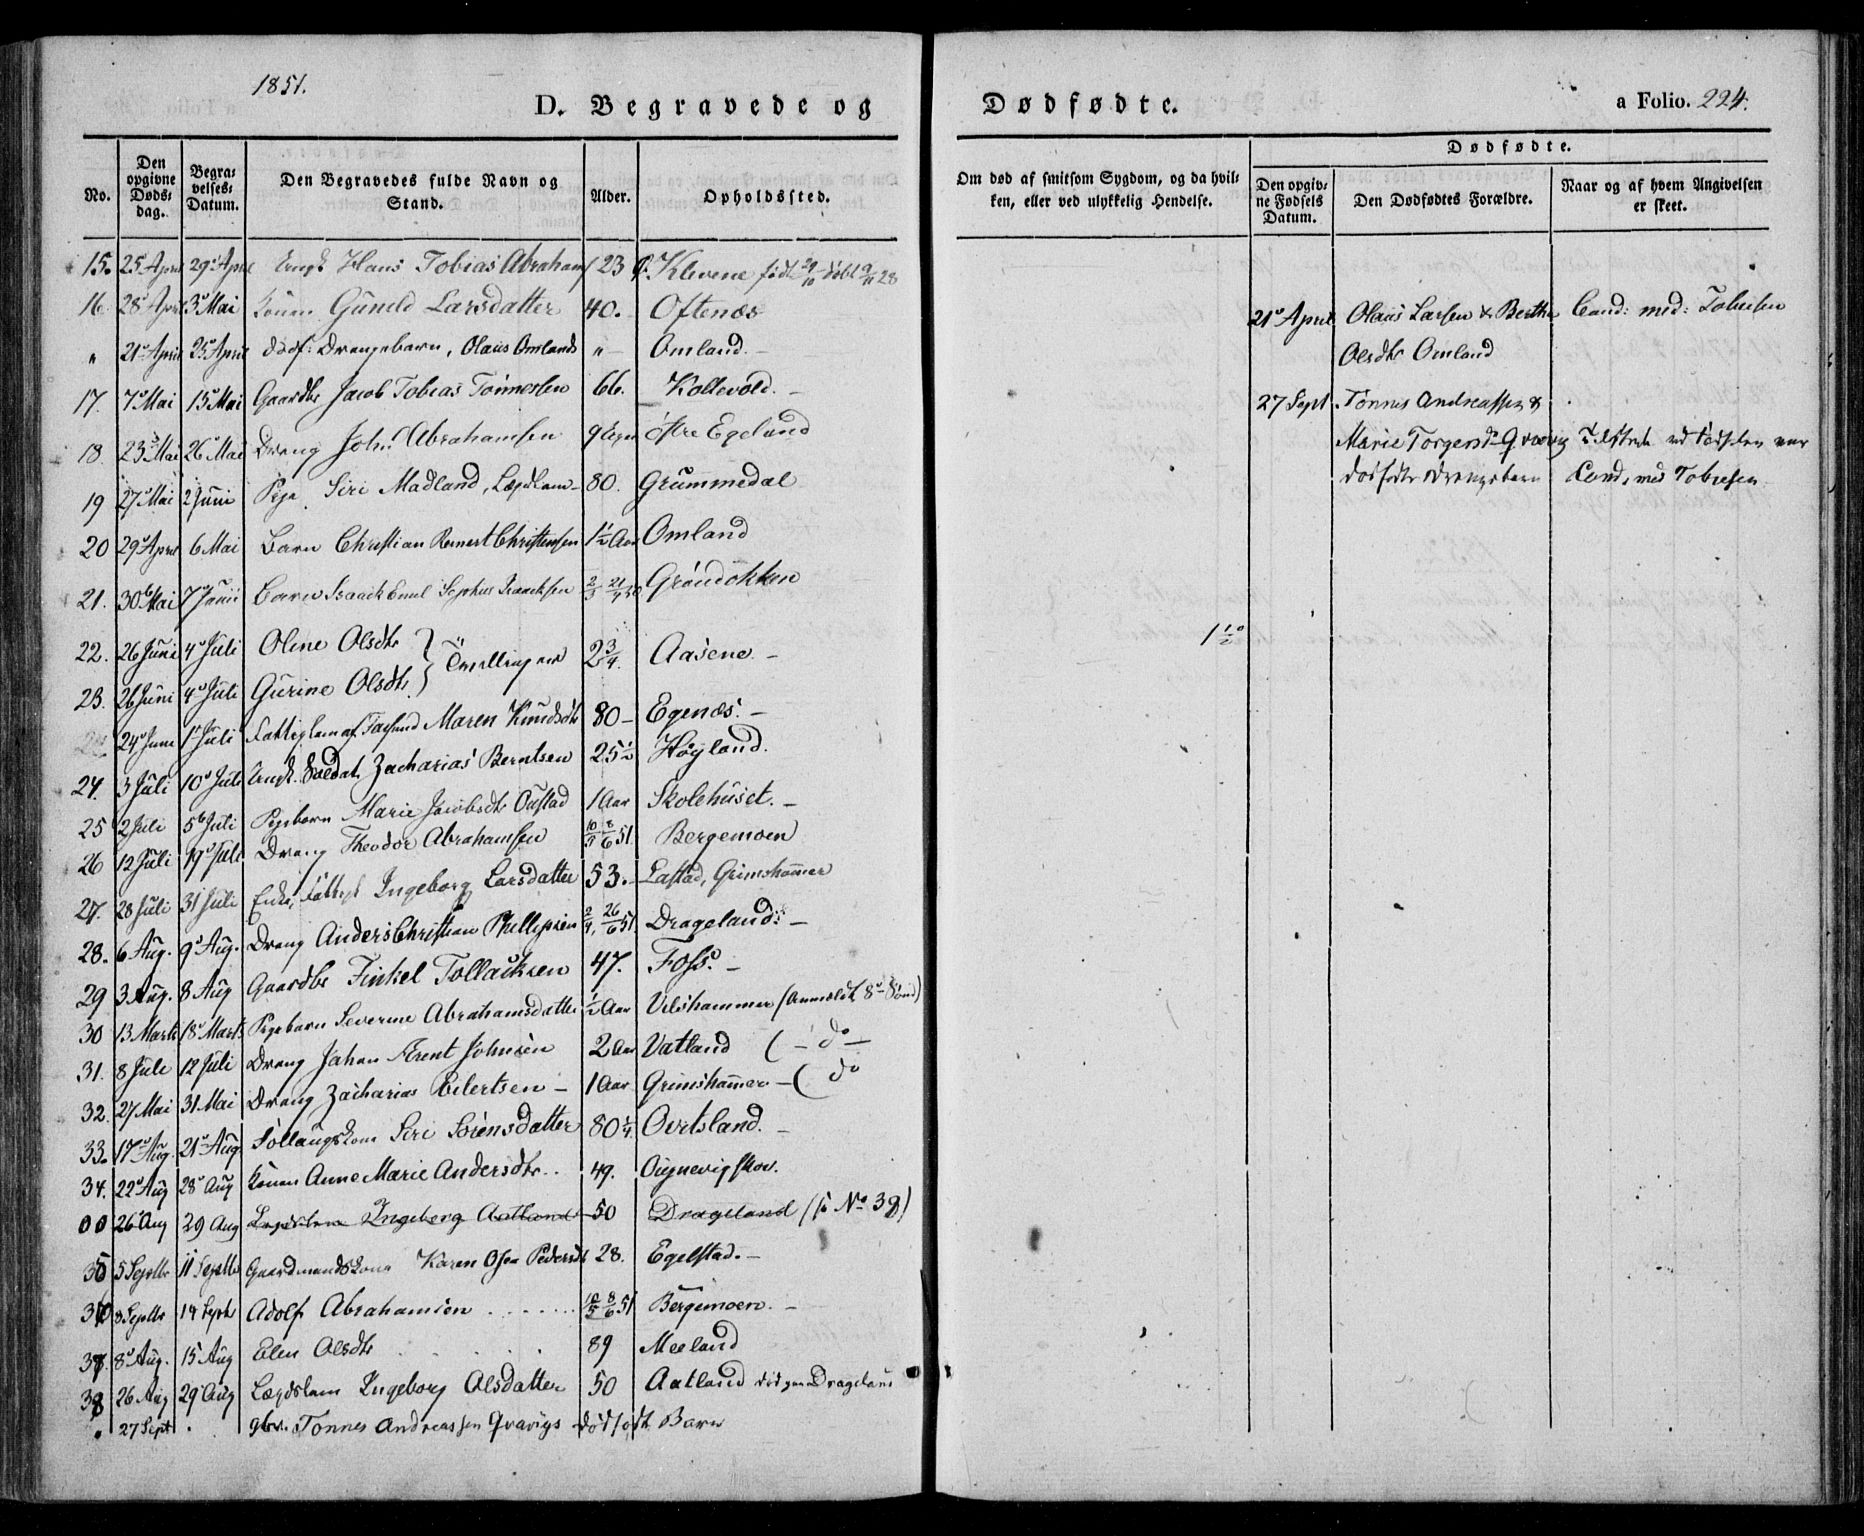 1851.
D. Begravede og
No.
Den opgivne Døds-dag.
Begra-velses-Datum.
Den Begravedes fulde Navn og Stand.
Alder.
Opholdssted.
15. 25 April 29 April Ungk Hans Tobias Abrahams 23 Klevene født 29/10 døbt 9/11 28
16. 28 April 3 Mai Konen Guneld Larsdatter 40. Oftenæs
" 21 April 25 April dødf: Drengebarn, Olaus Omlands " Omland.
17. 7 Mai 15 Mai Gaardbr Jacob Tobias Tönnessen 66. Kollevold.
18. 23 Mai 26 Mai Dreng John Abrahamsen 9 Östre Egeland
19 27 Mai 2 Juni Pige Siri Madland, Lægdlem 80. Grummedal
20 29 April 6 Mai Barn Christian Christensen 1½ Aar Omland
21. 30 Mai 7 Juni Barn Isaack Emil Sophus Isaacksen Gröndokken
22. 26 Juni 4 Juli Oline Olsdtr } Tvillinger 2¾ Aasene
23. 26 Juni 4 Juli Gurine Olsdtr
24 Juni 1 Juli Fattiglem af Maren Knudsdtr 80 Egenæs.
24. 3 Juli 10 Juli Ungk. Soldat Zacharias Berntsen 25½ Höyland.
25 2 Juli 5 Juli Pigebarn Marie Jacobsdtr 1 Aar Skolehuset.
26 12 Juli 19 Juli Dreng Theodor Abrahamsen 10/5 8/6 51 Bergemoen
27. 28 Juli 31 Juli Enke, Fattigl Ingeborg Larsdatter 53. Lastad, Grimshammer
28. 6 Aug. 9 Aug. Dreng Anders Christian Phillipsen 26/6 51 Drageland
29 3 Aug. 8 Aug Gaardbr Finkel Tollacksen 47. Foss.
30 13 Marts 18 Marts Pigebarn Severine Abrahamsdatter ½ Aar Vilshammer (Anmeldt 8 Sönd)
31. 8 Juli 12 Juli Dreng Johan Arent Johnsen 2 Aar Vatland ( do
32. 27 Mai 31 Mai Dreng Zacharias Eilertsen 1 Aar Grimshammer ( do
33. 17 Aug. 21 Aug Siri Sörensdatter 80¼ Ovrtsland.
34. 22 Aug 28 Aug Konen Anne Marie Andersdtr. 49.
00 26 Aug 29 Aug Lægdslem Ingeborg Aatland 50 Drageland (s No 38)
35 5 Septbr 11 Septbr Gaardmandskone Karen Pedersdt 28. Egelstad.
8 Septbr 14 Septbr Adolf Abrahamsen 10/5 8/6 51 Bergemoen.
37 8 Aug. 15 Aug Elen Olsdtr 89 Meeland
38 26 Aug 29 Aug Lægdslem Ingeborg Olsdatter 50 Aatland död paa Drageland
27 Sept gbr. Tönnes Andreassen Qvavigs dödfödt Barn
Dødfødte.
a Folio. 224.
Om død af smitsom Sygdom, og da hvil-ken, eller ved ulykkelig Hendelse.
Dødfødte.
Den opgiv-ne Fødsels Datum.
Den Dødfødtes Forældre.
Naar og af hvem Angivelsen er skeet.
21 April Olaus Larsen & Berthe Cand: med: Tobiesen
Olsdtr Omland
27 Sept Tönnes Andreassen &
Marie Torgersdtr Qvavig Tilstede ved Födselen var
dödfödte Drengebarn Cand. med Tobiesen
1½